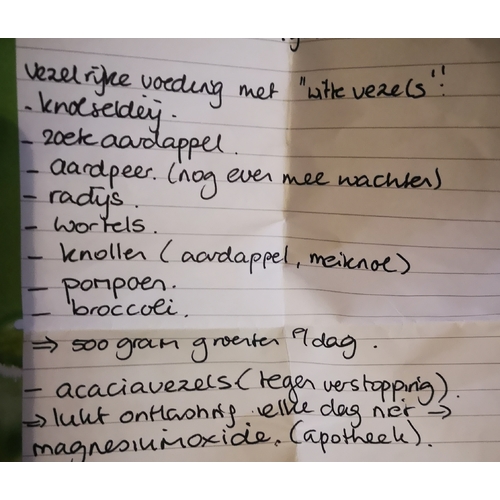 vezelrijke voeding met "witte vezels":
- knolselderij.
- zoete aardappel.
- aardpeer. (nog even mee wachten)
- radijs.
- wortels.
- knollen (aardappel, meiknol)
- pompoen.
- broccoli.
⇒ 500 gram groenten p/dag.
- acaciavezels (tegen verstopping).
⇒ lukt ontlasting elke dag niet →
magnesiumoxide. (apotheek).